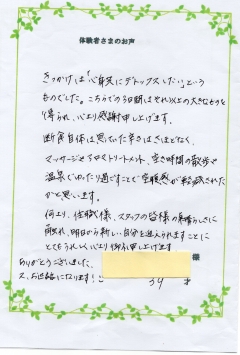 体験者さまのお声
きっかけは「心身共にデトックスしたい」という
ものでした。こちらでの3日間はそれ以上の大きなものを
得られ、心より感謝申し上げます。
断食自体は思っていた辛さはほとんどなく、
マッサージやアロマトリートメント、空き時間の散歩や
温泉でゆったり過ごすことで空腹感が軽減された
かと思います。
何より、住職様、スタッフの皆様の素晴らしさに
触れ、明日から新しい自分を迎えられますことに
とてもうれしく、心より御礼申し上げます
ありがとうございました。
又、お世話になります!!
様
39 才